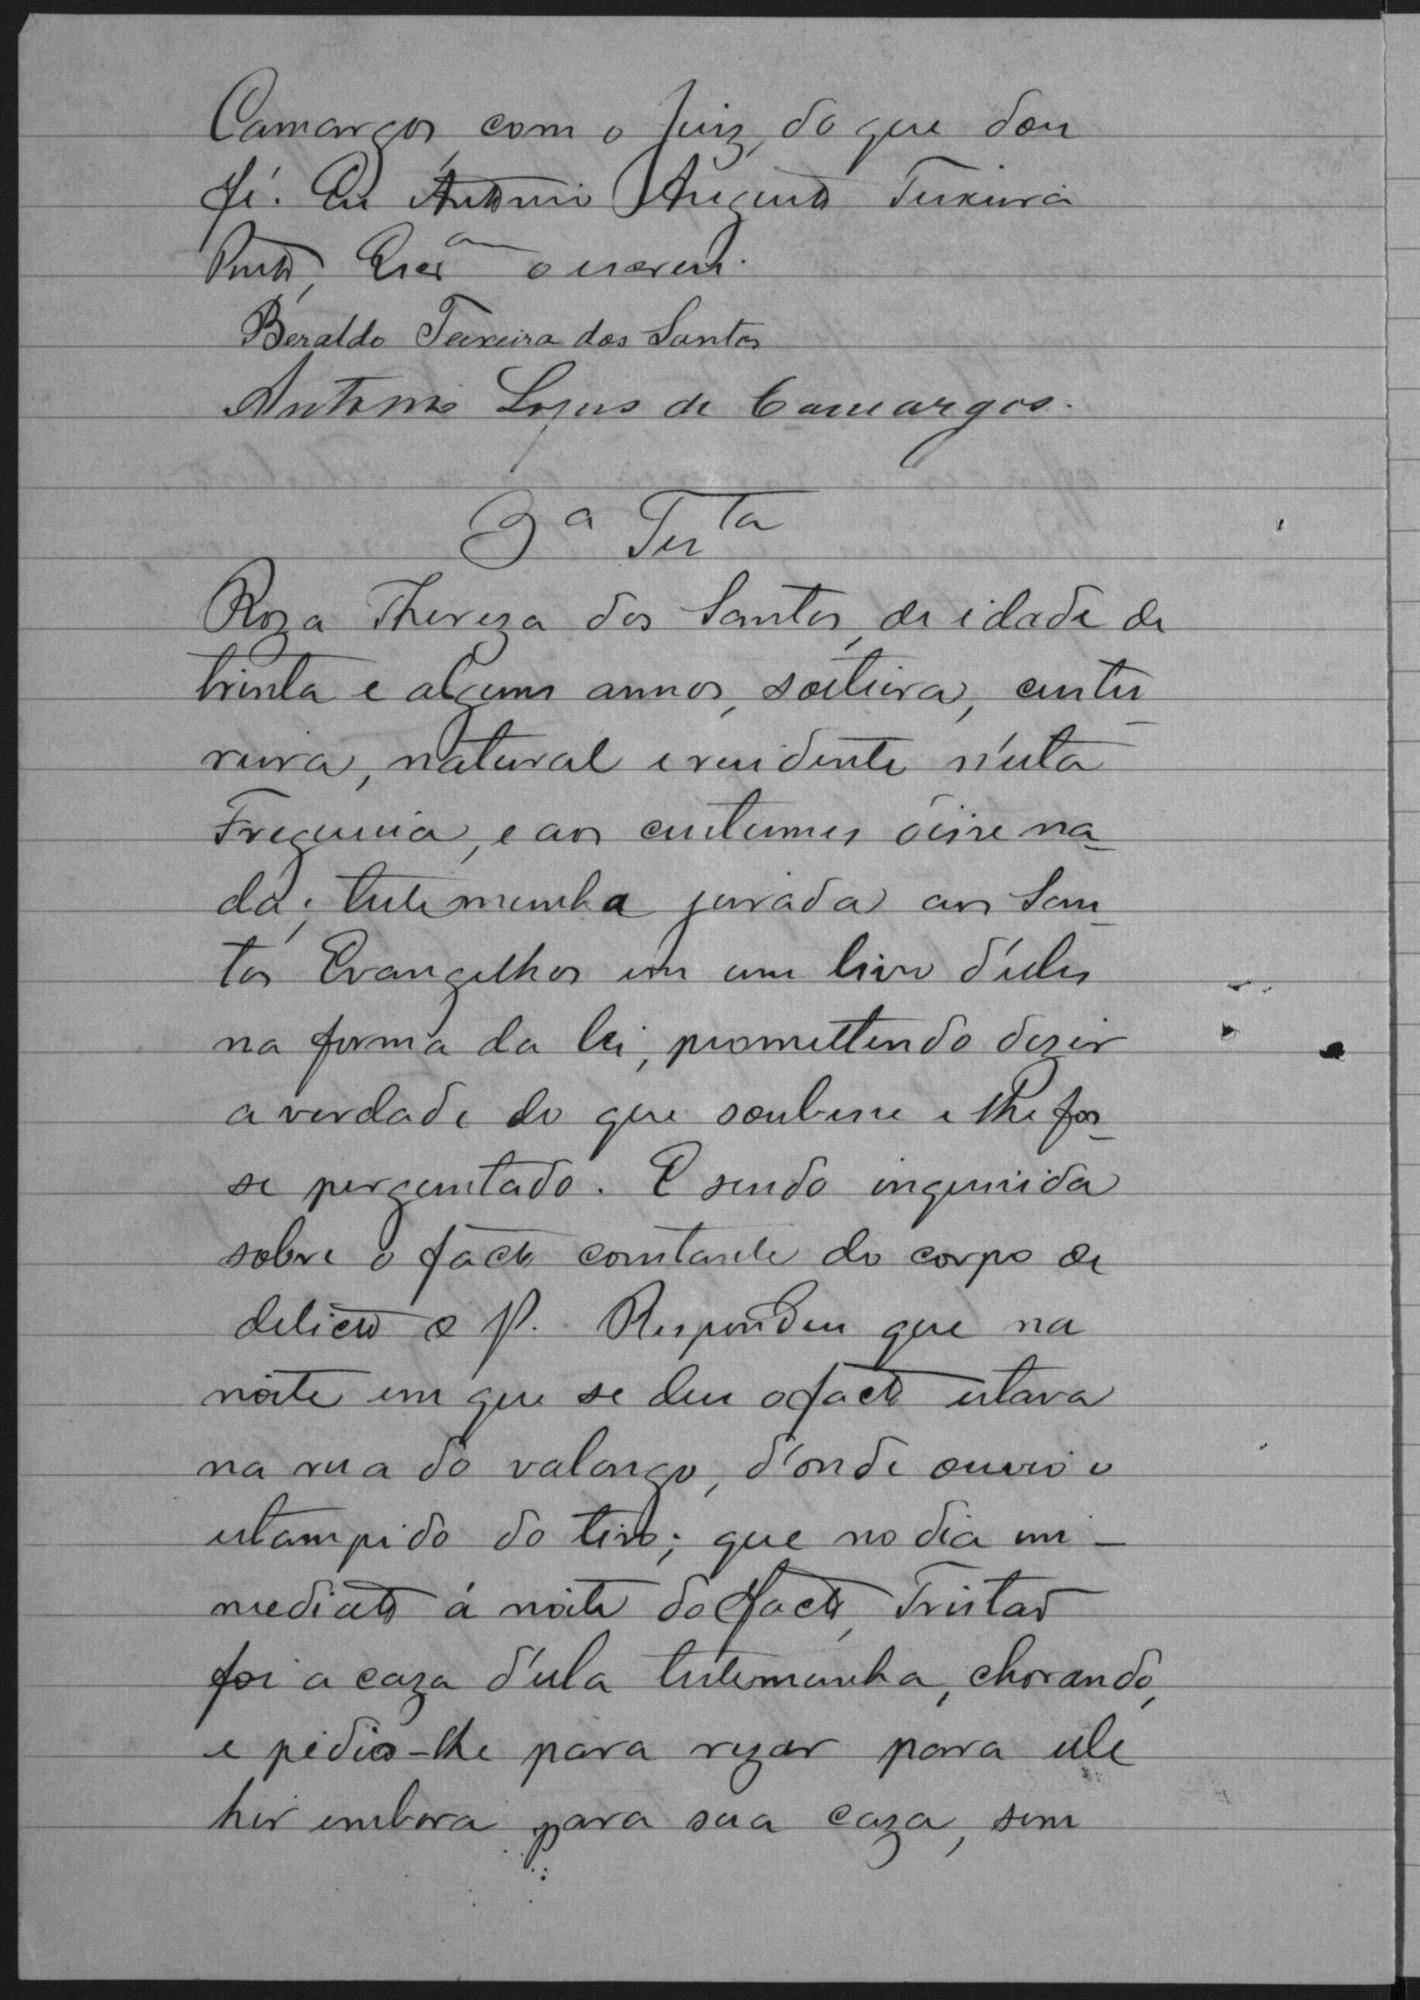 Camargos com o Juiz, do que dou
fé. Eu Antonio Augusto Teixeira
Escr.am o escrevi.
Beraldo Teixeira dos Santos
Antonio Lopes de Camargos.
3a Testa
Roza Thereza dos Santos, de idade de
trinta e alguns annos, solteira, custu
reira, natural e residente n'esta
Freguesia, e aos custumes disse na-
da; testemunha jurada aos San-
tos Evangelhos em um livro d'elles
na forma da lei, promettendo dizer
a verdade do que soubesse e lhe fos-
se perguntado. E sendo inquirida
sobre o facto constante do corpo de
delicto de f. Respondeu que na
noite em que se deu o facto estava
na rua do valongo, d'onde ouvio o
estampido do tiro; que no dia im-
mediato á noite do facto, Tristão
foi a caza d'ella testemunha, chorando,
e pedio-lhe para rezar para elle
hir embora para sua caza, sem